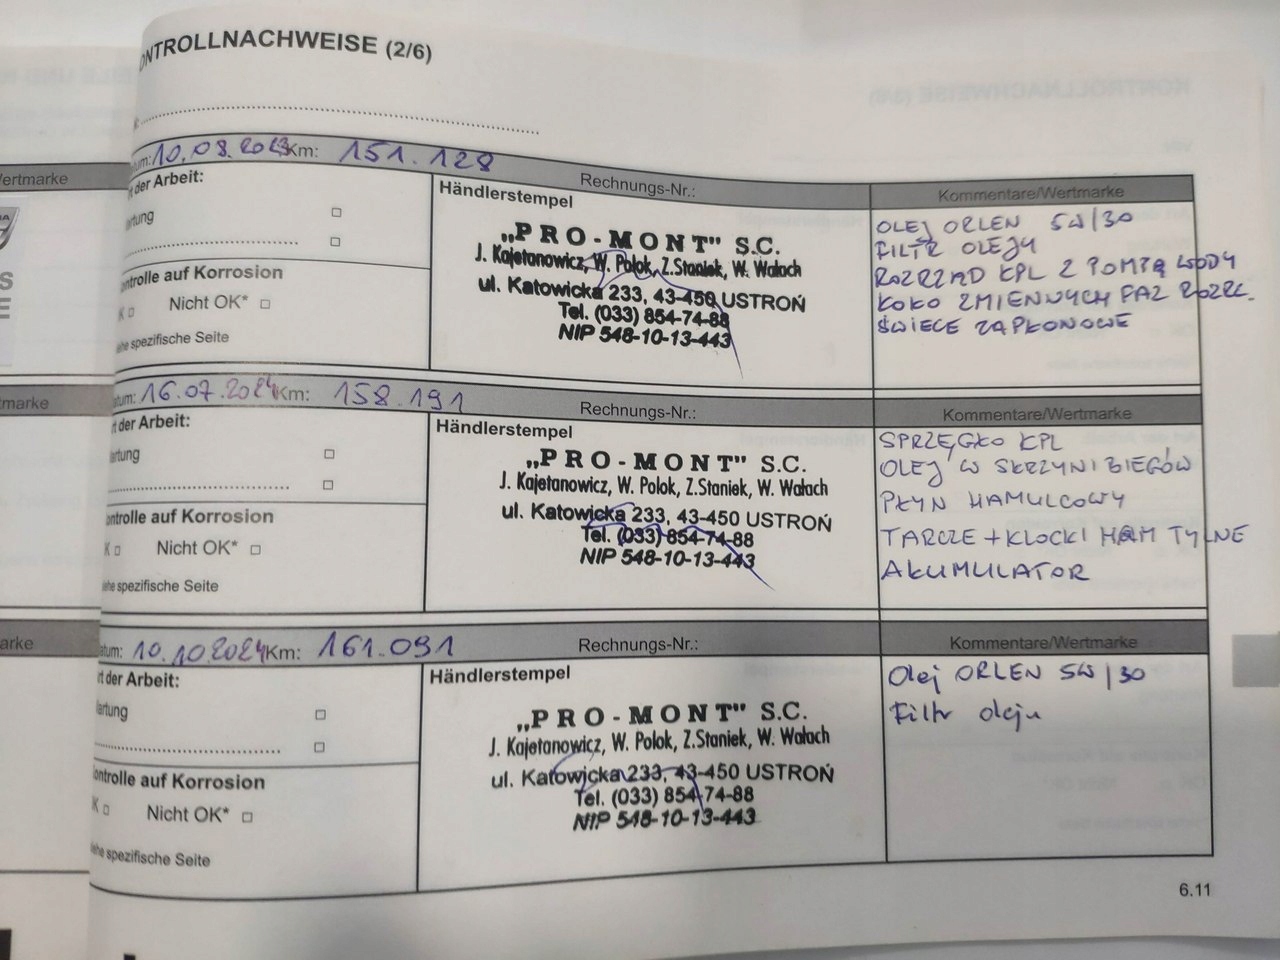 ONTROLLNACHWEISE (2/6)
10.08.2023 Km: 151.128
Rechnungs-Nr.:
Kommentare/Wertmarke
der Arbeit:
Händlerstempel
rtung
ntrolle auf Korrosion
K Nicht OK*
he spezifische Seite
„PRO-MONT" S.C.
J. Kajetanowicz, W. Polok, Z.Staniek, W. Wałach
ul. Katowicka 233, 43-450 USTROŃ
Tel. (033) 854-74-88
NIP 548-10-13-443
OLEJ ORLEN 5W/30
FILTR OLEJU
ROZRZĄD KPL Z POMPĄ WODY
KOŁO ZMIENNYCH FAZ ROZRZ.
ŚWIECE ZAPŁONOWE
tum: 16.07.2024 Km: 158.191
Rechnungs-Nr.:
Kommentare/Wertmarke
t der Arbeit:
Händlerstempel
artung
ontrolle auf Korrosion
K Nicht OK*
ehe spezifische Seite
„PRO-MONT" S.C.
J. Kajetanowicz, W. Polok, Z.Staniek, W. Wałach
ul. Katowicka 233, 43-450 USTROŃ
Tel. (033) 854-74-88
NIP 548-10-13-443
SPRZĘGŁO KPL
OLEJ W SKRZYNI BIEGÓW
PŁYN HAMULCOWY
TARCZE + KLOCKI HAM TYLNE
AKUMULATOR
atum: 10.10.2024 Km: 161.091
Rechnungs-Nr.:
Kommentare/Wertmarke
rt der Arbeit:
Händlerstempel
artung
ontrolle auf Korrosion
K Nicht OK*
ehe spezifische Seite
„PRO-MONT" S.C.
J. Kajetanowicz, W. Polok, Z.Staniek, W. Wałach
ul. Katowicka 233, 43-450 USTROŃ
Tel. (033) 854-74-88
NIP 548-10-13-443
Olej ORLEN 5W/30
Filtr oleju
6.11
ertmarke
tmarke
arke